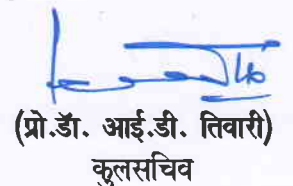 (प्रो.डॉ. आई.डी. तिवारी)
कुलसचिव